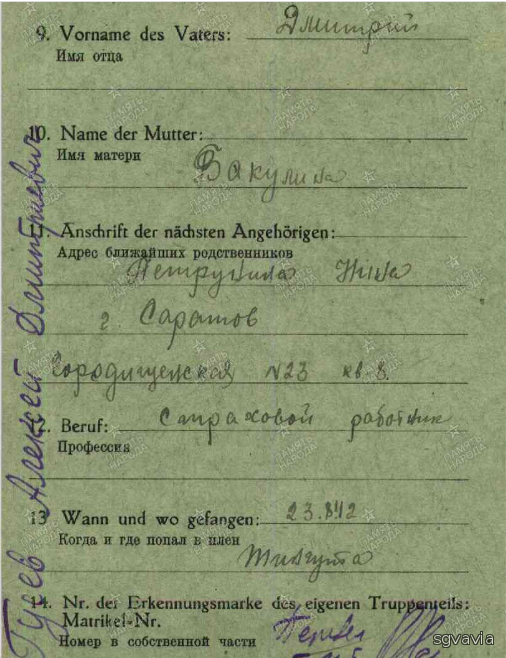 9. Vorname des Vaters: Дмитрий
Имя отца
10. Name der Mutter:
Имя матери Бакулина
11. Anschrift der nächsten Angehörigen:
Адрес ближайших родственников
Петрунина Нина
г Саратов
Городищенская №23 кв. 8.
12. Beruf: Страховой работник
Профессия
13 Wann und wo gefangen: 23.8.42
Когда и где попал в плен
Тингута
14. Nr. der Erkennungsmarke des eigenen Truppenteils:
Matrikel-Nr.
Номер в собственной части
Гусев Алексей Дмитриевич
ПАМЯТЬ НАРОДА
sgvavia